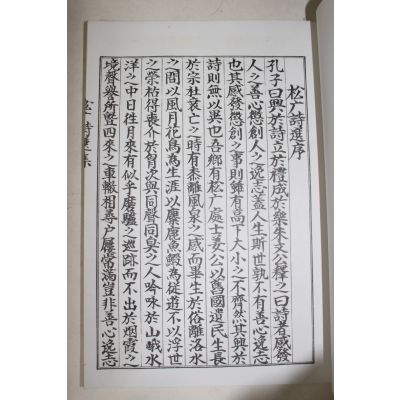 松广詩選序
孔子曰興於詩立於禮成於樂朱文公釋之曰詩者感發
人之善心懲創人之逸志蓋人生斯世孰不有善心逸志
也其感發懲創之事則雖有高下大小之不齊然其興於
詩則無以異也吾鄉有松广處士姜公以舊國遺民生長
於宗社衰亡之時有黍離風泉之感而畢生於俗離洛水
之間以風月花鳥為生涯以麋鹿魚鰕為從遊不以浮世
之榮枯得喪介於胷次與同聲同臭之人吟咏於山峨水
洋之中日往月來有似乎磨驢之巡跡而不出於烟霞之
境聲譽所曁四來之車轍相尋戶屨常滿豈非善心逸志
松广詩選集